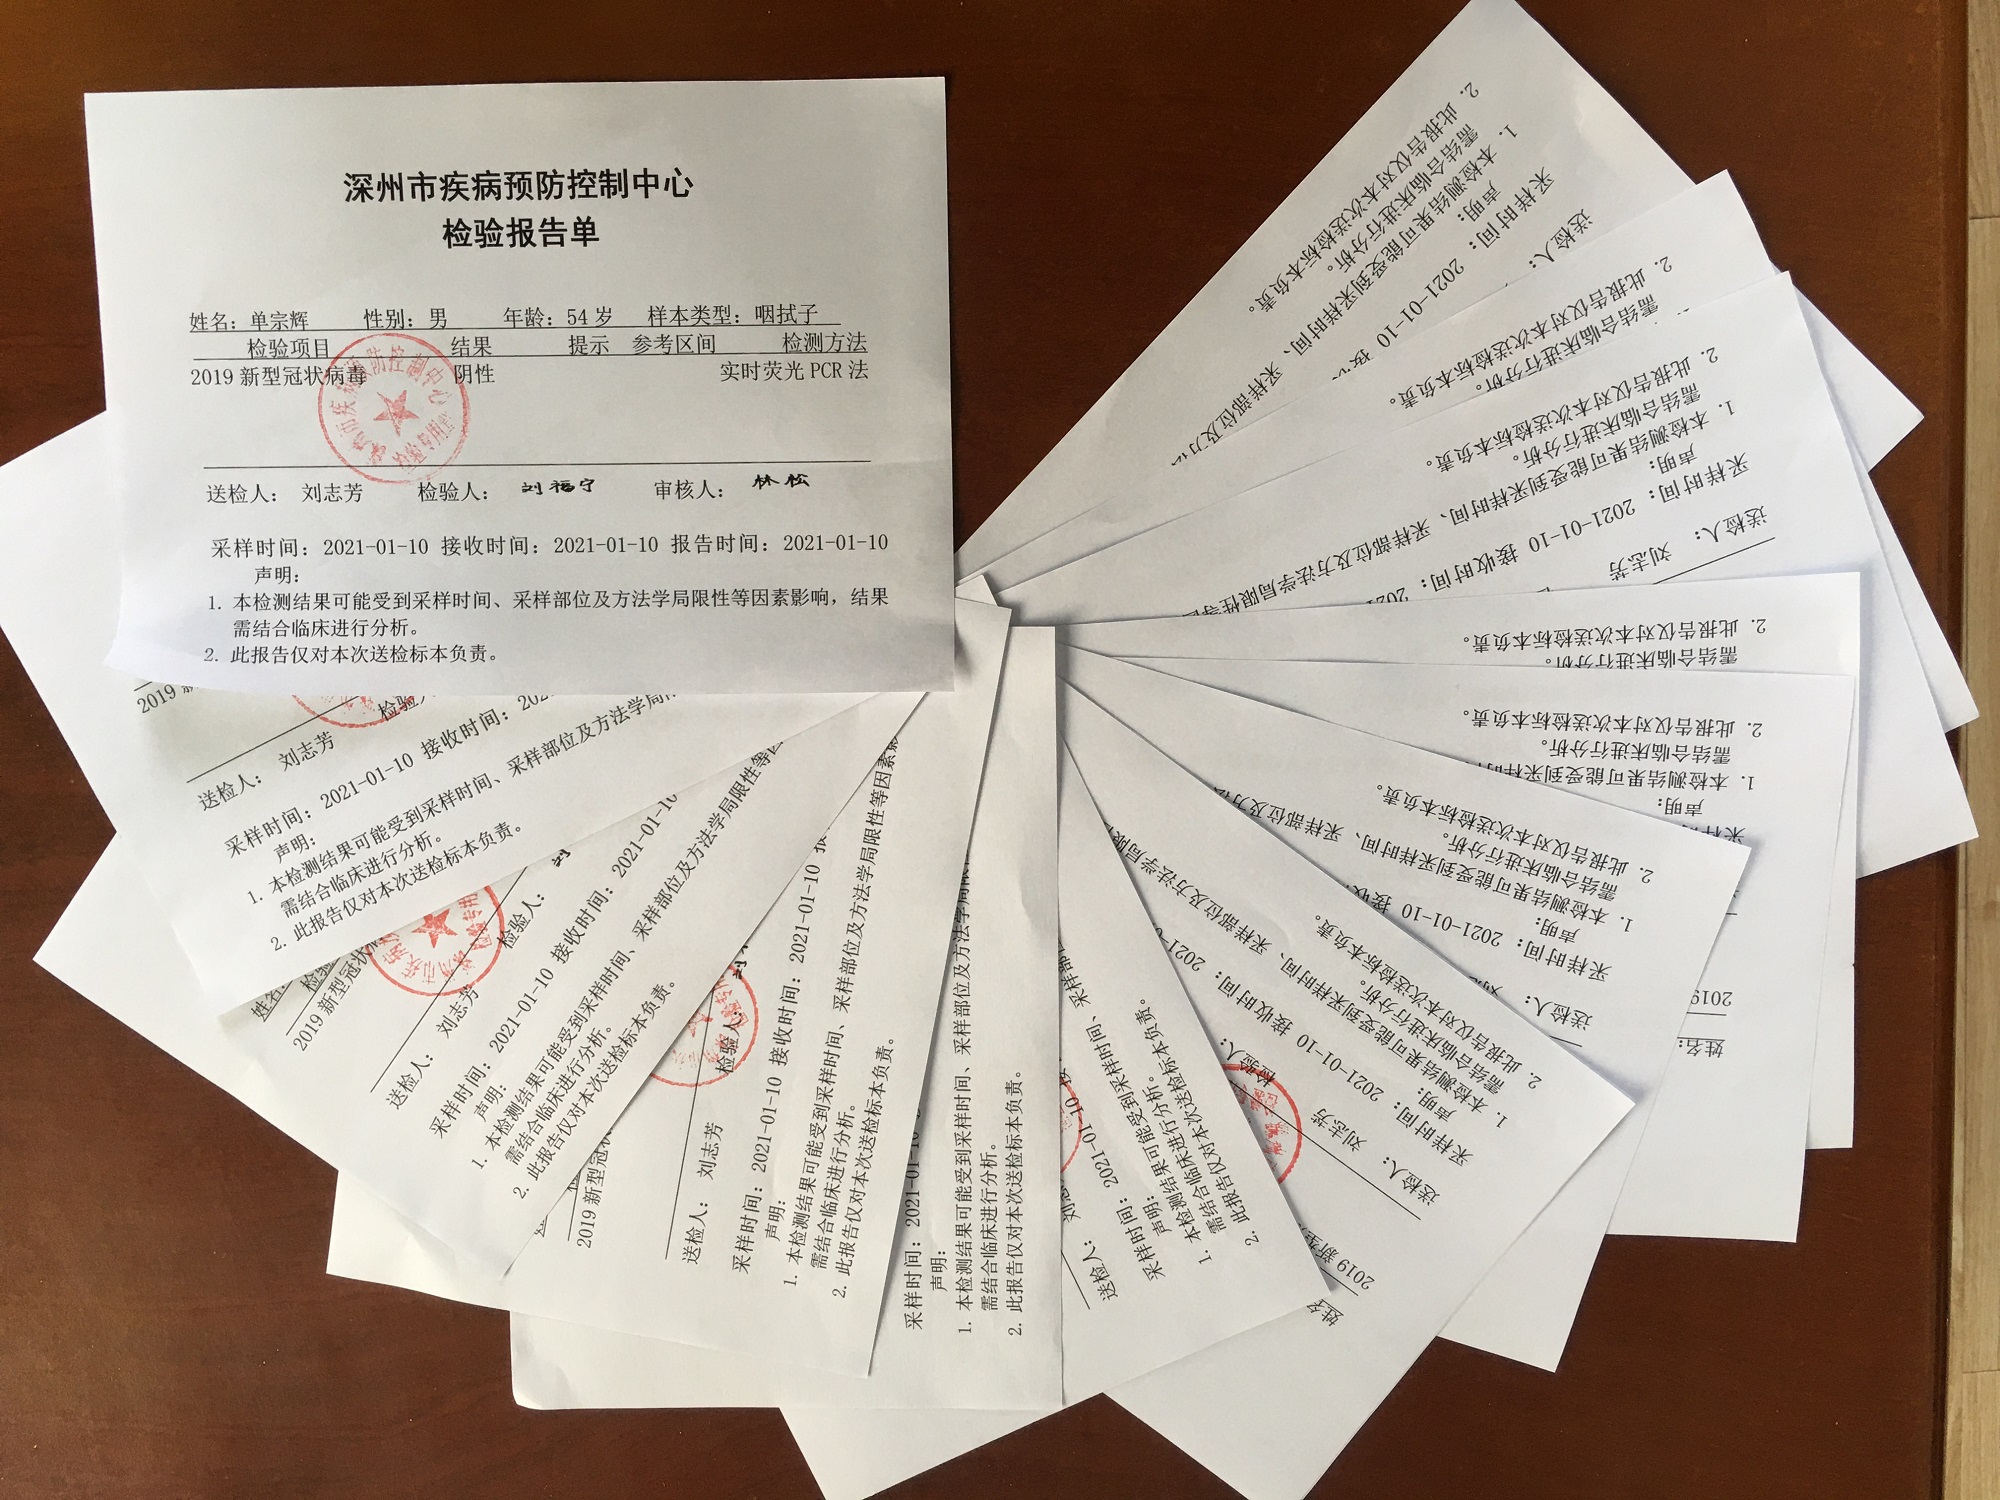 深州市疾病预防控制中心
检验报告单
姓名：单宗辉 性别：男 年龄：54岁 样本类型：咽拭子
检验项目 结果 提示 参考区间 检测方法
2019新型冠状病毒 阴性 实时荧光PCR法
送检人： 刘志芳 检验人： 刘福宁 审核人： 林松
采样时间：2021-01-10 接收时间：2021-01-10 报告时间：2021-01-10
声明：
1. 本检测结果可能受到采样时间、采样部位及方法学局限性等因素影响，结果
需结合临床进行分析。
2. 此报告仅对本次送检标本负责。
2019
检验
送检人： 刘志芳
采样时间：2021-01-10 接收时间：
声明：
1. 本检测结果可能受到采样时间、采样部位及方法学局
需结合临床进行分析。
2. 此报告仅对本次送检标本负责。
姓名
检验
2019新型冠状
送检人： 刘志芳 检验人：
采样时间：2021-01-10 接收时间：2021-01-10
声明：
1. 本检测结果可能受到采样时间、采样部位及方法学局限性等
需结合临床进行分析。
2. 此报告仅对本次送检标本负责。
2019新型冠
送检人： 刘志芳 检验人：
采样时间：2021-01-10 接收时间：2021-01-10
声明：
1. 本检测结果可能受到采样时间、采样部位及方法学局限性等因素影
需结合临床进行分析。
2. 此报告仅对本次送检标本负责。
采样时间：2021-01-10
声明：
1. 本检测结果可能受到采样时间、采样部位及方法学局限
需结合临床进行分析。
2. 此报告仅对本次送检标本负责。
送检人：
采样时间：2021-01-10
声明：
1. 本检测结果可能受到采样时间、采样部
需结合临床进行分析。
2. 此报告仅对本次送检标本负责。
姓名
2019新型
送检人： 刘志芳 检验人：
采样时间：2021-01-10 接收时间：2021-
声明：
1. 本检测结果可能受到采样时间、采样部位及方法学局限
需结合临床进行分析。
2. 此报告仅对本次送检标本负责。
送检人：
采样时间：2021-01-10 接收
声明：
1. 本检测结果可能受到采样时间、采样部位及方法
需结合临床进行分析。
2. 此报告仅对本次送检标本负责。
姓名：
2019
采样
声明：
1. 本检测结果可能受到采样时
需结合临床进行分析。
2. 此报告仅对本次送检标本负责。
需结合临床进行分析。
2. 此报告仅对本次送检标本负责。
送检人： 刘志芳
采样时间：2021-01-10 接收时间：2021
声明：
1. 本检测结果可能受到采样时间、采样部位及方法学局限性等
需结合临床进行分析。
2. 此报告仅对本次送检标本负责。
需结合临床进行分析。
2. 此报告仅对本次送检标本负责。
送检人：
采样时间：2021-01-10 接
声明：
1. 本检测结果可能受到采样时间、采样部位及方
需结合临床进行分析。
2. 此报告仅对本次送检标本负责。